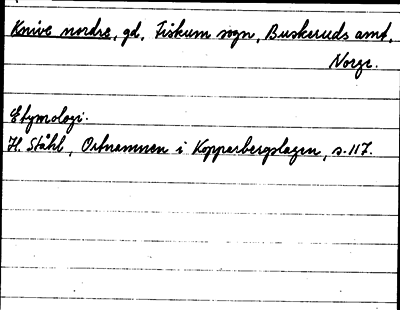 Knive nordre, gd, Fiskum sogn, Buskeruds amt,
Norge.
Etymologi.
H. Ståhl, Ortnamnen i Kopparbergslagen, s. 117.